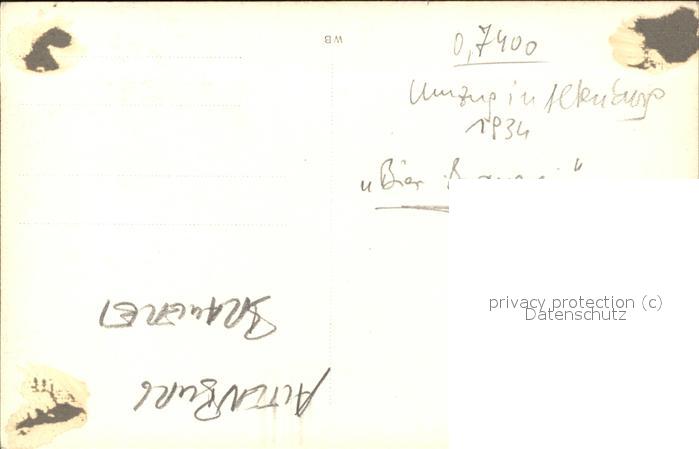 WB
0,7400
Umzug in Altenburg
1934
"Bier
privacy protection (c)
Datenschutz
ALTENBURG
BRAUEREI